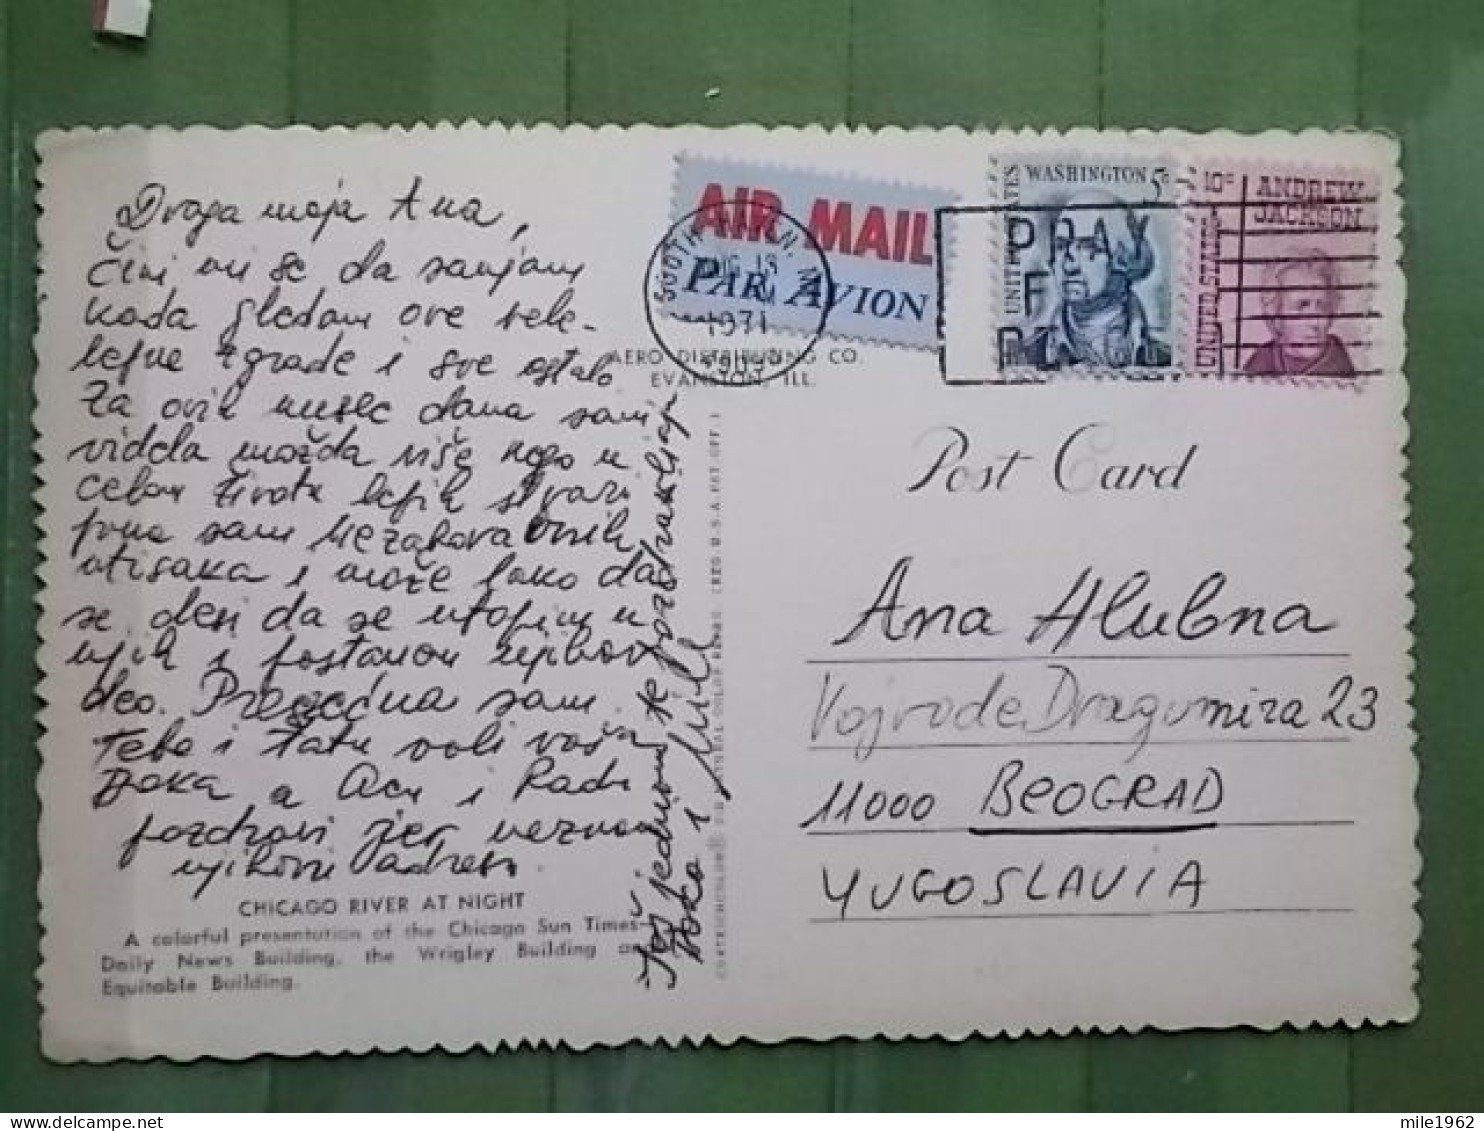 Draga moja Ana,
čini mi se da sanjam
kada gledam ove vele-
lepne zgrade i sve ostalo
Za ovih mesec dana sam
videla možda više nego u
celom životu lepih stvari
puna sam nezaboravnih
utisaka i može lako da
se desi da se utopim u
njih i postanem njihov
deo. Pregedna sam
Tebe i Tatu voli vaša
Boka a Acu i Radu
pozdravi jer neznam
njihovu adresu
Još jednom te pozdravljaju
Boka i Mile
CHICAGO RIVER AT NIGHT
A colorful presentation of the Chicago Sun Times-
Daily News Building, the Wrigley Building and
Equitable Building.
AIR MAIL
PAR AVION
SOUTH
18
1971
AERO DISTRIBUTING CO.
EVANSTON, ILL.
UNITED STATES
WASHINGTON 5c
PRAY
10c ANDREW
JACKSON
UNITED STATES
Post Card
Ana Hlubna
Vojvode Dragomira 23
11000 BEOGRAD
YUGOSLAVIA
mile1962